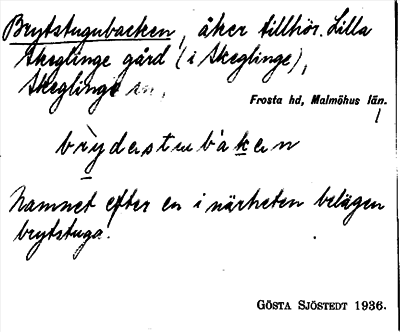 Brytstugubacken, åker tillhör. Lilla
Skeglinge gård (i Skeglinge),
Skeglinge sn,
Frosta hd, Malmöhus län.
brydestubaken
Namnet efter en i närheten belägen
brytstuga.
GÖSTA SJÖSTEDT 1936.